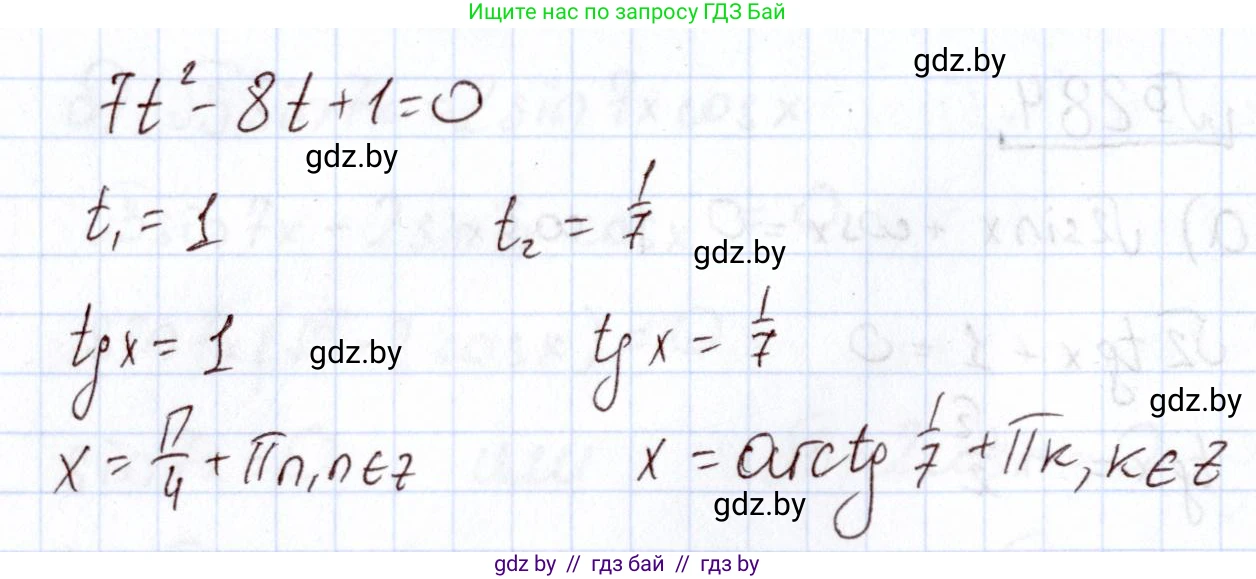 Ищите нас по запросу ГДЗ Бай
gdz.by
7t² - 8t + 1 = 0
gdz.by
t₁ = 1 t₂ = 1/7
gdz.by
tg x = 1 tg x = 1/7
gdz.by
gdz.by
x = π/4 + πn, n ∈ z x = arctg 1/7 + πk, k ∈ z
gdz.by
gdz.by // гдз бай // gdz.by